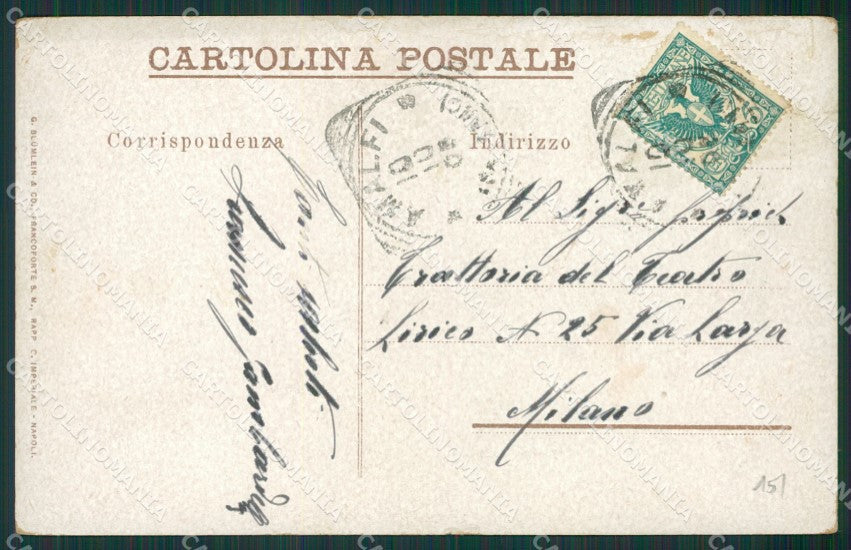 CARTOLINA POSTALE
Corrispondenza
Indirizzo
AMALFI
AMALFI
Al Sigr
Trattoria del Teatro
Lirico N 25 Via Larga
Milano
saluti
G. BLÜMLEIN & CO., FRANCOFORTE S. M., RAPP. C. IMPERIALE - NAPOLI.
151
CARTOLINOMANIA